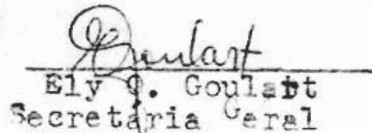 Goulart
Ely G. Goulart
Secretária Geral